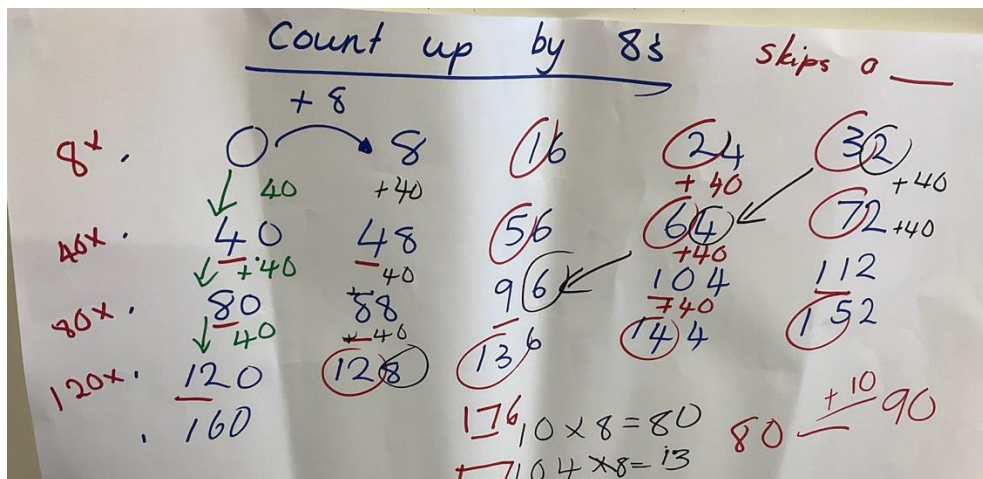 Count up by 8s skips a __
+ 8
8x. 0 8 16 24 32
40 +40 + 40 +40
40x. 40 48 56 64 72 +40
+ 40 40 +40
80x. 80 88 96 104 112
40 40 740
120x. 120 128 136 144 152
. 160 176 10 x 8 = 80 80 + 10 90
104 x8= 13